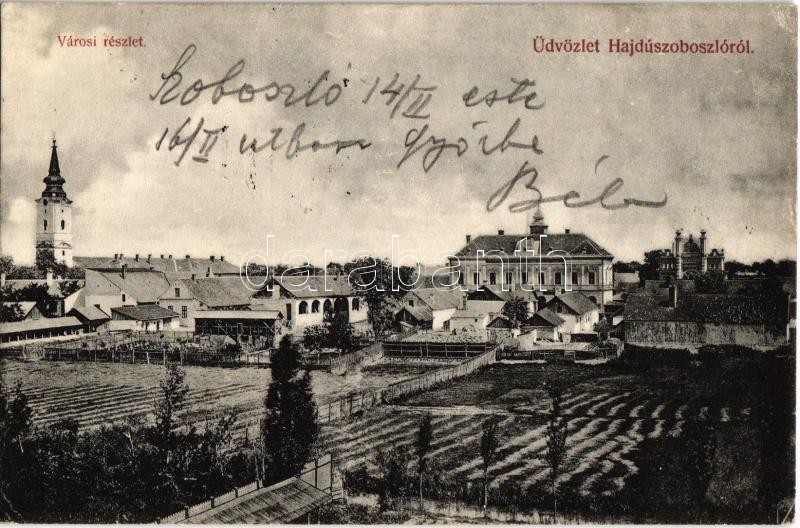 Városi részlet.
Üdvözlet Hajdúszoboszlóról.
Szoboszló 14/II este
16/II utban Győrbe
Béla
darabanth